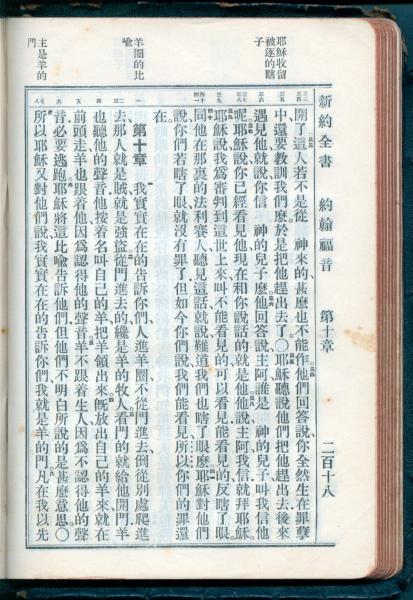 新約全書 約翰福音 第十章 二百十八
耶穌收留
被逐的瞎
子
羊圈的比
喻
主是羊的
門
開了這人若不是從 神來的甚麼也不能作他們回答說你全然生在罪孽
中還要教訓我們麼於是把他趕出去了〇耶穌聽說他們把他趕出去後來
遇見他就說你信 神的兒子麼他回答說主阿誰是 神的兒子叫我信他
呢耶穌說你已經看見他現在和你說話的就是他他說主阿我信就拜耶穌
耶穌說我爲審判到這世上來叫不能看見的可以看見能看見的反瞎了眼
同他在那裏的法利賽人聽見這話就說難道我們也瞎了眼麼耶穌對他們
說你們若瞎了眼就沒有罪了但如今你們說我們能看見所以你們的罪還
在
第十章 我實實在在的告訴你們人進羊圈不從門進去倒從別處爬進
去那人就是賊就是強盜從門進去的纔是羊的牧人看門的就給他開門羊
也聽他的聲音他按着名叫自己的羊把羊領出來旣放出自己的羊來就在
前頭走羊也跟着他因爲認得他的聲音羊不跟着生人因爲不認得他的聲
音必要逃跑耶穌將這比喻告訴他們但他們不明白所說的是甚麼意思〇
所以耶穌又對他們說我實實在在的告訴你們我就是羊的門凡在我以先